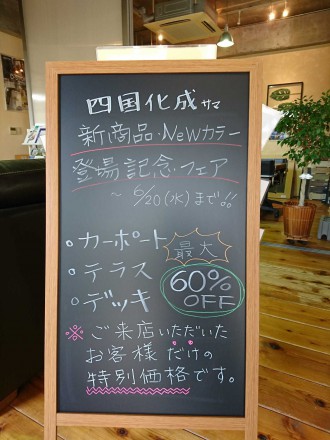 四国化成サマ
新商品・Newカラー
登場記念・フェア
～6/20(水)まで!!
・カーポート
・テラス
・デッキ
最大
60%
OFF
※ご来店いただいた
お客様だけの
特別価格です。